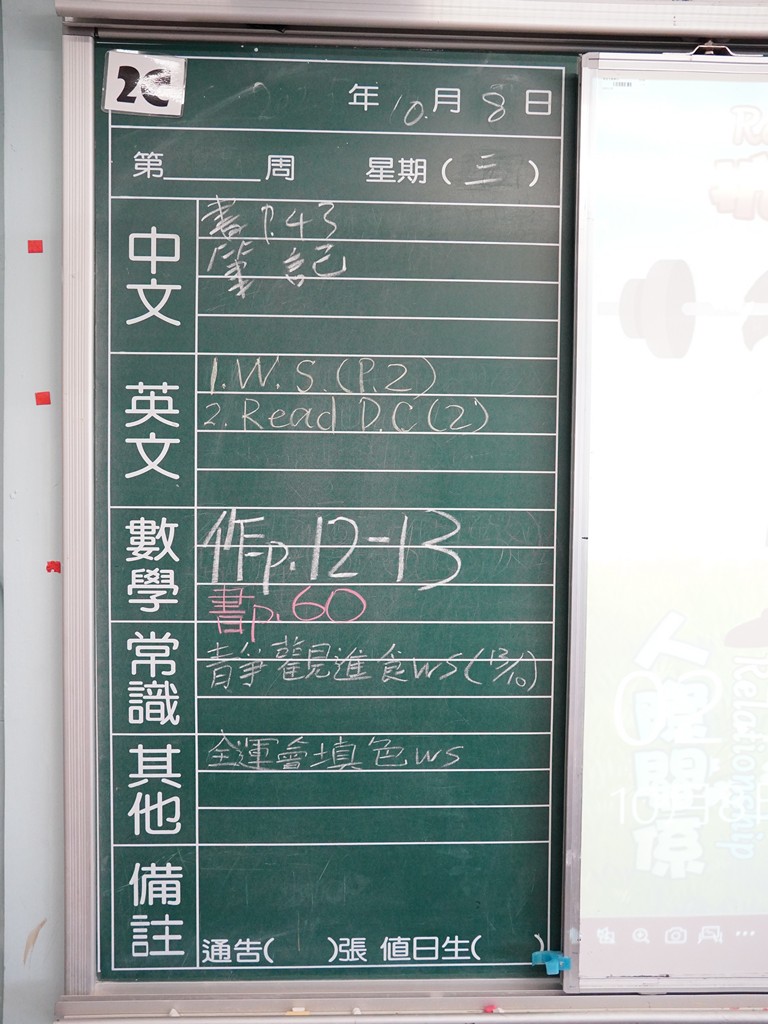 2C
年 10月 8日
第______周 星期(三)
中文
書P.43
筆記
英文
1.W.S.(P.2)
2.Read D.C(2)
數學
作p.12-13
書p.60
常識
觀進食ws(13/10)
其他
全運會填色ws
備註
通告( )張 值日生( )
人際關係
Relationship